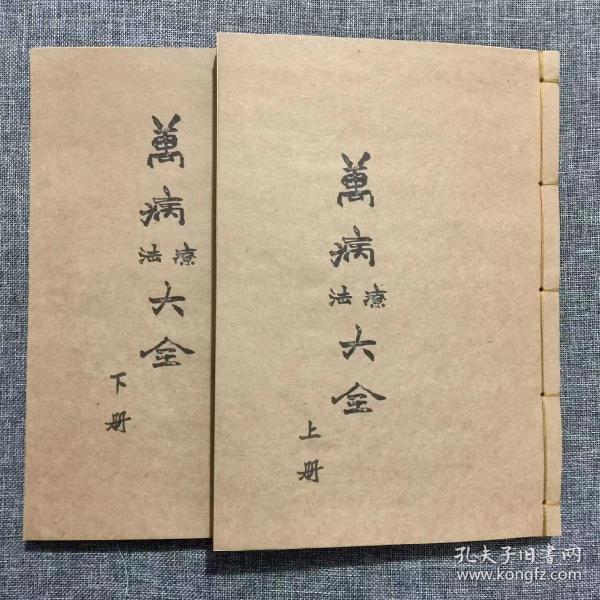 萬病療法大全
上册
萬病療法大全
下册
孔夫子旧書网
www.kongfz.com